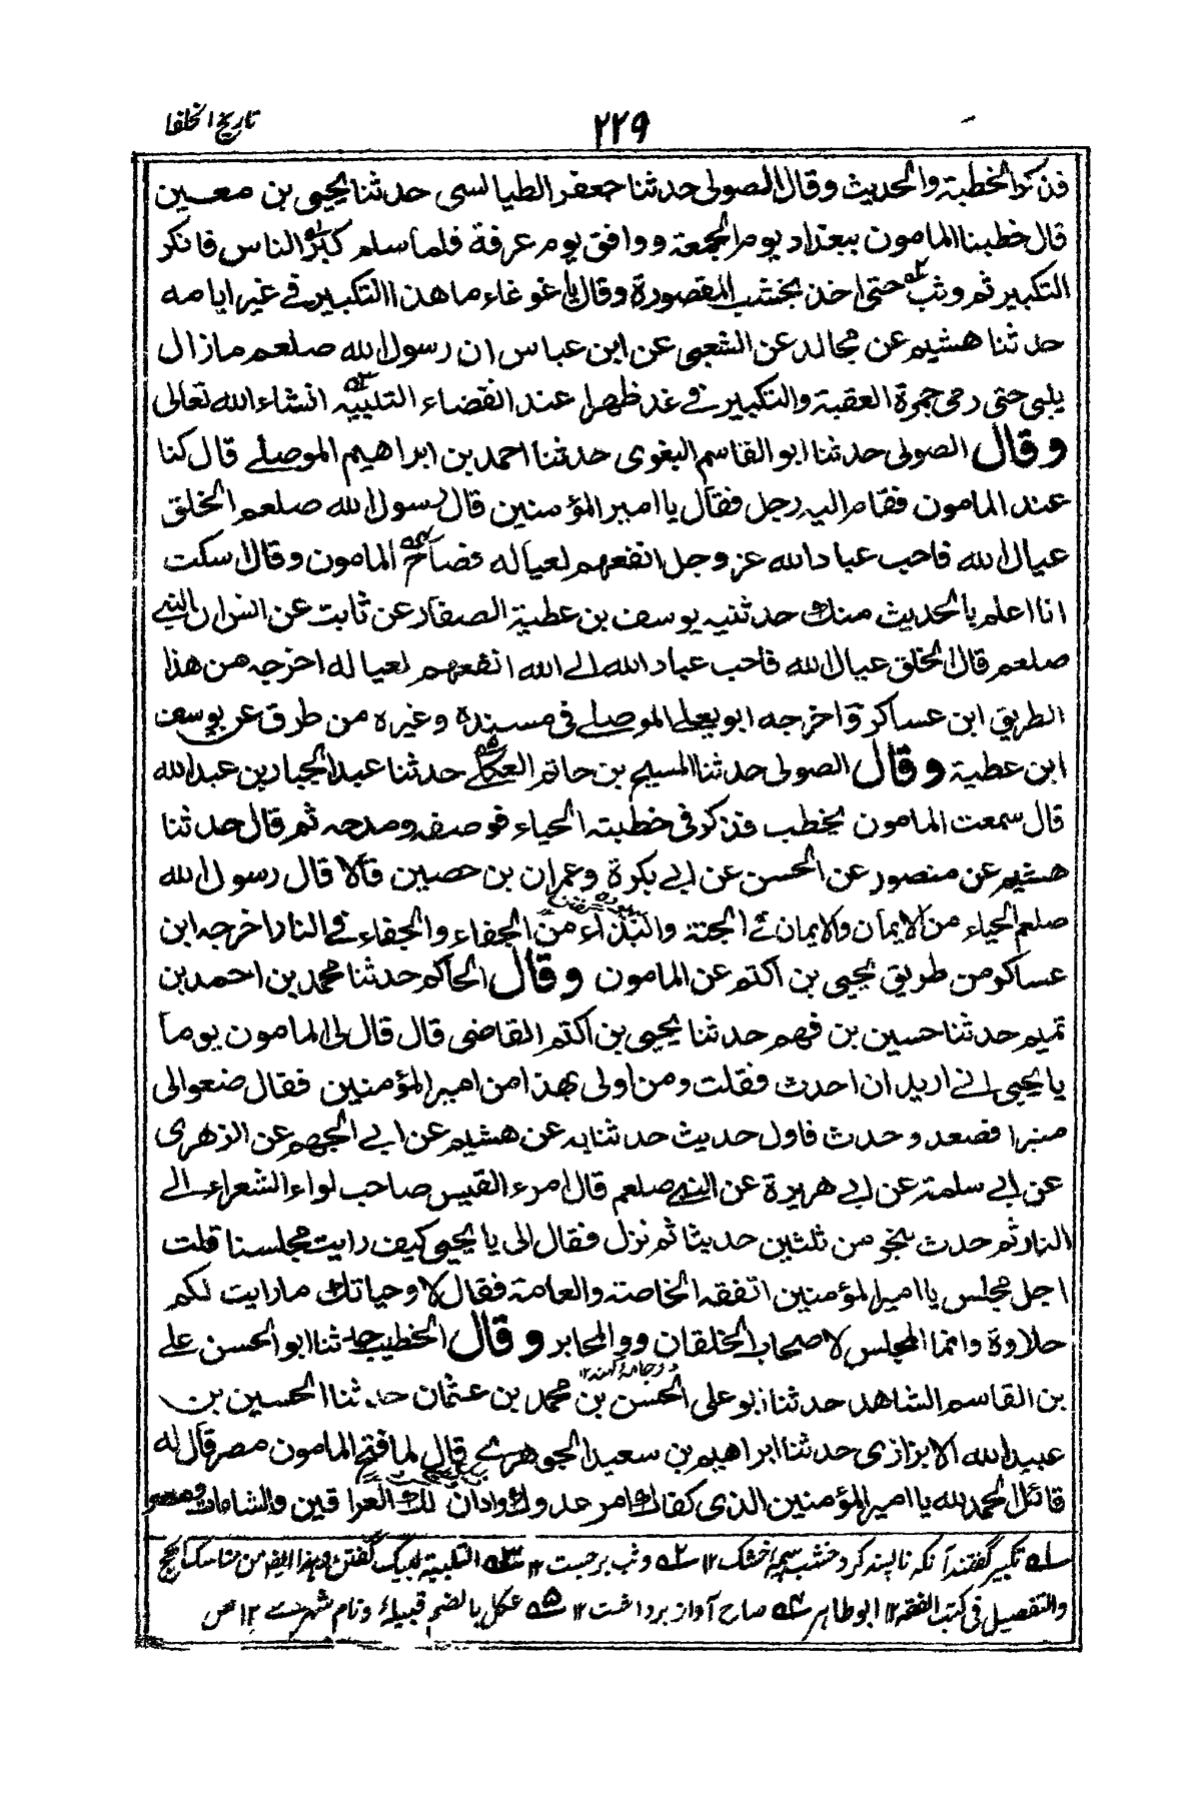 تاريخ الخلفا
٢٢٩
فذكر الخطبة والحديث وقال الصولى حدثنا جعفر الطيالسى حدثنا يحيى بن معين
قال خطبنا المامون ببغداد يوم الجمعة ووافق يوم عرفة فلما سلم كبر الناس فانكر
التكبير ثم وثب حتى اخذ بخشب المقصورة وقال يا غوغاء ما هذا التكبير فى غير ايامه
حدثنا هشيم عن مجالد عن الشعبى عن ابن عباس ان رسول الله صلعم مازال
يلبى حتى رمى جمرة العقبة والتكبير فى غد ظهرا عند انقضاء التلبية انشاء الله تعالى
وقال الصولى حدثنا ابو القاسم البغوى حدثنا احمد بن ابراهيم الموصلے قال كنا
عند المامون فقام اليه رجل فقال يا امير المؤمنين قال رسول الله صلعم الخلق
عيال الله فاحب عباد الله عز وجل انفعهم لعياله فصاح المامون وقال اسكت
انا اعلم بالحديث منك حدثنيه يوسف بن عطية الصفار عن ثابت عن انس ان النبے
صلعم قال الخلق عيال الله فاحب عباد الله الے الله انفعهم لعياله اخرجه من هذا
الطريق ابن عساكر واخرجه ابو يعلے الموصلے فى مسنده وغيره من طرق عن يوسف
ابن عطية وقال الصولى حدثنا المسيح بن حاتم العكلے حدثنا عبد الجبار بن عبد الله
قال سمعت المامون يخطب فذكر فى خطبته الحياء فوصفه ومدحه ثم قال حدثنا
هشيم عن منصور عن الحسن عن ابے بكرة وعمران بن حصين قالا قال رسول الله
صلعم الحياء من الايمان والايمان فے الجنة والبذاء من الجفاء والجفاء فے النار اخرجه ابن
عساكر من طريق يحيى بن اكتم عن المامون وقال الحاكم حدثنا محمد بن احمد بن
تميم حدثنا حسين بن فهم حدثنا يحيى بن اكتم القاضى قال قال لى المامون يوما
يا يحيى انے اريد ان احدث فقلت ومن اولى بهذا من امير المؤمنين فقال ضعوا لى
منبرا فصعد وحدث فاول حديث حدثنا به عن هشيم عن ابے الجهم عن الزهرى
عن ابے سلمة عن ابے هريرة عن النبے صلعم قال امرء القيس صاحب لواء الشعراء الے
النار ثم حدث بنحو من ثلثين حديثا ثم نزل فقال لى يا يحيى كيف رايت مجلسنا قلت
اجل مجلس يا امير المؤمنين تفقه الخاصة والعامة فقال لا وحياتك مارايت لكم
حلاوة وانما المجلس لاصحاب الخلقان ووالمحابر وقال الخطيب حدثنا ابو الحسن علے
بن القاسم الشاهد حدثنا ابو على الحسن بن محمد بن عثمان حدثنا الحسين بن
عبيد الله الابزازى حدثنا ابراهيم بن سعيد الجوهرے قال لما فتح المامون مصر قال له
قائل الحمد لله يا امير المؤمنين الذى كفاك امر عدوك وادان لك العراقين والشامات ومصر
سله تكبير گفتند آنكه ناپسند كرد خشب چوب خشك ١٢ سله وثب برجست ١٢ سله التلبية لبيك گفتن وهذا ايضا من مناسك الحج
والتفصيل فى كتب الفقه ١٢ ابو طاهر سله صاح آواز برداشت ١٢ سله عكل بالضم قبيلۀ ونام شهرے ١٢ ص